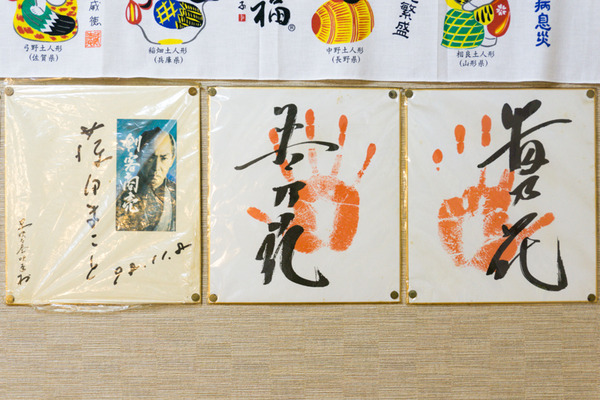 弓野土人形
(佐賀県)
稲畑土人形
(兵庫県)
福
®
中野土人形
(長野県)
繁盛
相良土人形
(山形県)
病息災
藤田まこと
剣客商売
98.11.8
若乃花
貴乃花